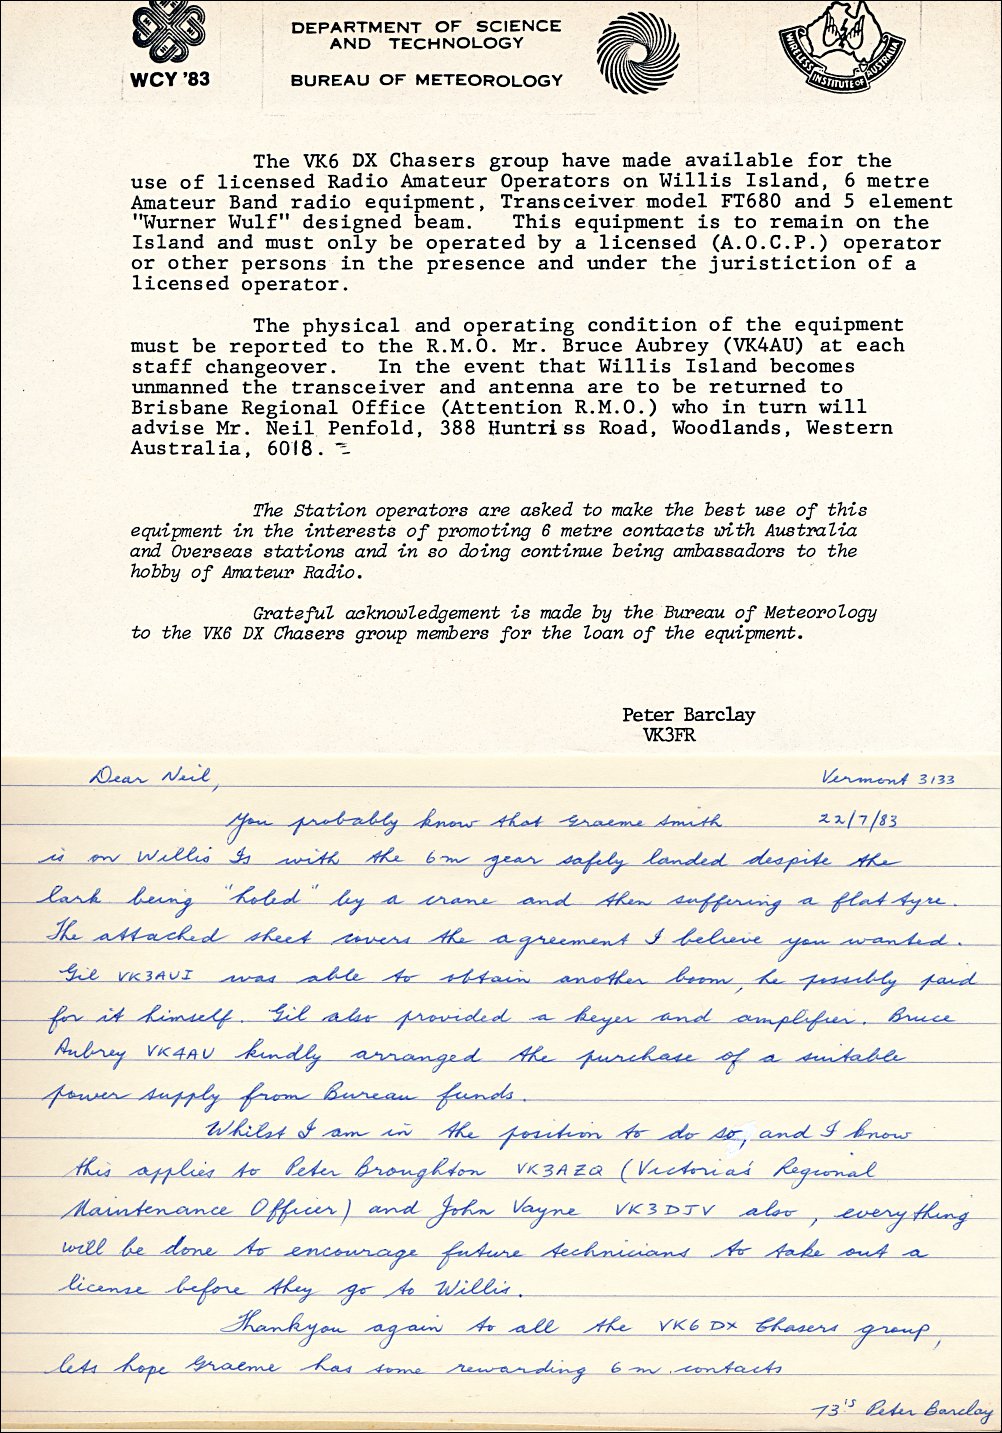 WCY '83
DEPARTMENT OF SCIENCE
AND TECHNOLOGY
BUREAU OF METEOROLOGY
WIRELESS INSTITUTE OF AUSTRALIA
The VK6 DX Chasers group have made available for the
use of licensed Radio Amateur Operators on Willis Island, 6 metre
Amateur Band radio equipment, Transceiver model FT680 and 5 element
"Wurner Wulf" designed beam. This equipment is to remain on the
Island and must only be operated by a licensed (A.O.C.P.) operator
or other persons in the presence and under the juristiction of a
licensed operator.
The physical and operating condition of the equipment
must be reported to the R.M.O. Mr. Bruce Aubrey (VK4AU) at each
staff changeover. In the event that Willis Island becomes
unmanned the transceiver and antenna are to be returned to
Brisbane Regional Office (Attention R.M.O.) who in turn will
advise Mr. Neil Penfold, 388 Huntriss Road, Woodlands, Western
Australia, 6018.
The Station operators are asked to make the best use of this
equipment in the interests of promoting 6 metre contacts with Australia
and Overseas stations and in so doing continue being ambassadors to the
hobby of Amateur Radio.
Grateful acknowledgement is made by the Bureau of Meteorology
to the VK6 DX Chasers group members for the loan of the equipment.
Peter Barclay
VK3FR
Dear Neil, Vermont 3133
You probably know that Graeme Smith 22/7/83
is on Willis Is with the 6m gear safely landed despite the
lark being "holed" by a crane and then suffering a flat tyre.
The attached sheet covers the agreement I believe you wanted.
Gil VK3AUI was able to obtain another boom, he possibly paid
for it himself. Gil also provided a keyer and amplifier. Bruce
Aubrey VK4AU kindly arranged the purchase of a suitable
power supply from Bureau funds.
Whilst I am in the position to do so, and I know
this applies to Peter Broughton VK3AZQ (Victoria's Regional
Maintenance Officer) and John Vayne VK3DJV also, everything
will be done to encourage future technicians to take out a
license before they go to Willis.
Thankyou again to all the VK6 DX Chasers group,
lets hope Graeme has some rewarding 6m. contacts
73's Peter Barclay